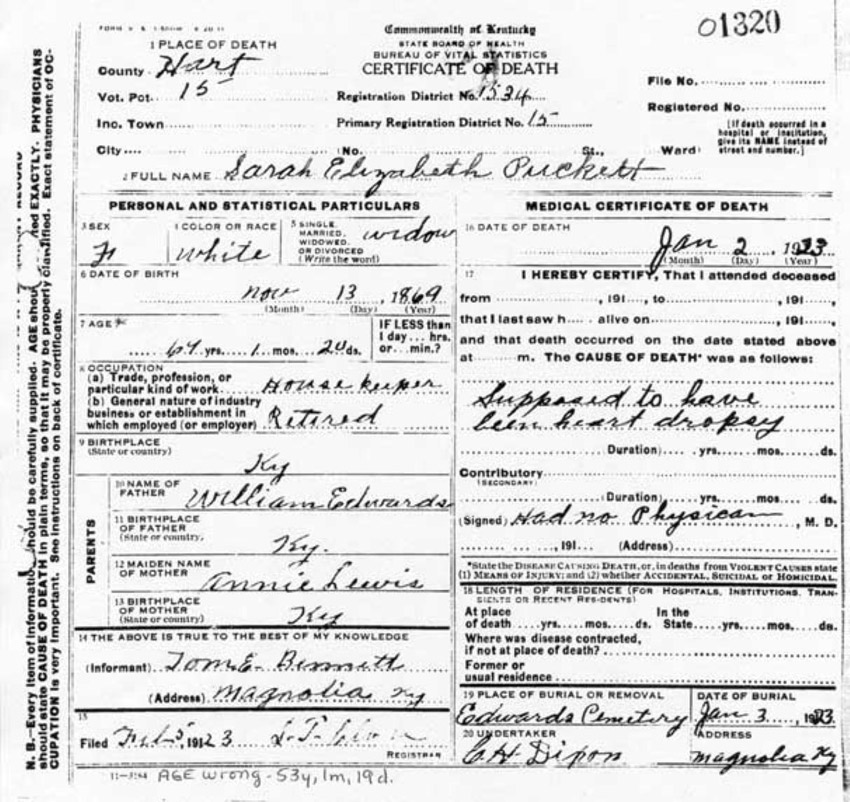 01320
Commonwealth of Kentucky
STATE BOARD OF HEALTH
BUREAU OF VITAL STATISTICS
CERTIFICATE OF DEATH
1 PLACE OF DEATH
County Hart
Vot. Pct. 15
Inc. Town
City
Registration District No. 1534
Primary Registration District No. 15
(No. St., Ward)
File No.
Registered No.
[If death occurred in a hospital or institution, give its NAME instead of street and number.]
2 FULL NAME Sarah Elizabeth Puckett
PERSONAL AND STATISTICAL PARTICULARS
3 SEX
F
4 COLOR OR RACE
white
5 SINGLE, MARRIED, WIDOWED, OR DIVORCED (Write the word)
widow
6 DATE OF BIRTH
Nov 13, 1869
(Month) (Day) (Year)
7 AGE
yrs. 1 mos. 20 ds.
IF LESS than 1 day... hrs. or... min.?
8 OCCUPATION
(a) Trade, profession, or particular kind of work House keeper
(b) General nature of industry business or establishment in which employed (or employer) Retired
9 BIRTHPLACE
(State or country)
Ky
PARENTS
10 NAME OF FATHER William Edwards
11 BIRTHPLACE OF FATHER (State or country) Ky.
12 MAIDEN NAME OF MOTHER Annie Lewis
13 BIRTHPLACE OF MOTHER (State or country) Ky
14 THE ABOVE IS TRUE TO THE BEST OF MY KNOWLEDGE
(Informant) Tom E. Bennett
(Address) Magnolia Ky
15
Filed 1923
REGISTRAR
MEDICAL CERTIFICATE OF DEATH
16 DATE OF DEATH
Jan 2, 1923
(Month) (Day) (Year)
17 I HEREBY CERTIFY, That I attended deceased
from , 191 , to , 191 ,
that I last saw h alive on , 191 ,
and that death occurred on the date stated above
at m. The CAUSE OF DEATH* was as follows:
Supposed to have
been heart dropsy
(Duration) yrs. mos. ds.
Contributory
(SECONDARY)
(Duration) yrs. mos. ds.
(Signed) Had no Physican, M. D.
, 191 (Address)
*State the DISEASE CAUSING DEATH, or, in deaths from VIOLENT CAUSES state
(1) MEANS OF INJURY; and (2) whether ACCIDENTAL, SUICIDAL or HOMICIDAL.
18 LENGTH OF RESIDENCE (FOR HOSPITALS, INSTITUTIONS, TRANSIENTS OR RECENT RESIDENTS)
At place of death yrs. mos. ds. In the State yrs. mos. ds.
Where was disease contracted,
if not at place of death?
Former or
usual residence
19 PLACE OF BURIAL OR REMOVAL
Edwards Cemetery
DATE OF BURIAL
Jan 3, 1923
20 UNDERTAKER
C.H. Dixon
ADDRESS
Magnolia Ky
AGE wrong - 53y, 1m, 19d.
N. B.—Every item of information should be carefully supplied. AGE should be stated EXACTLY. PHYSICIANS
should state CAUSE OF DEATH in plain terms, so that it may be properly classified. Exact statement of OC-
CUPATION is very important. See instructions on back of certificate.